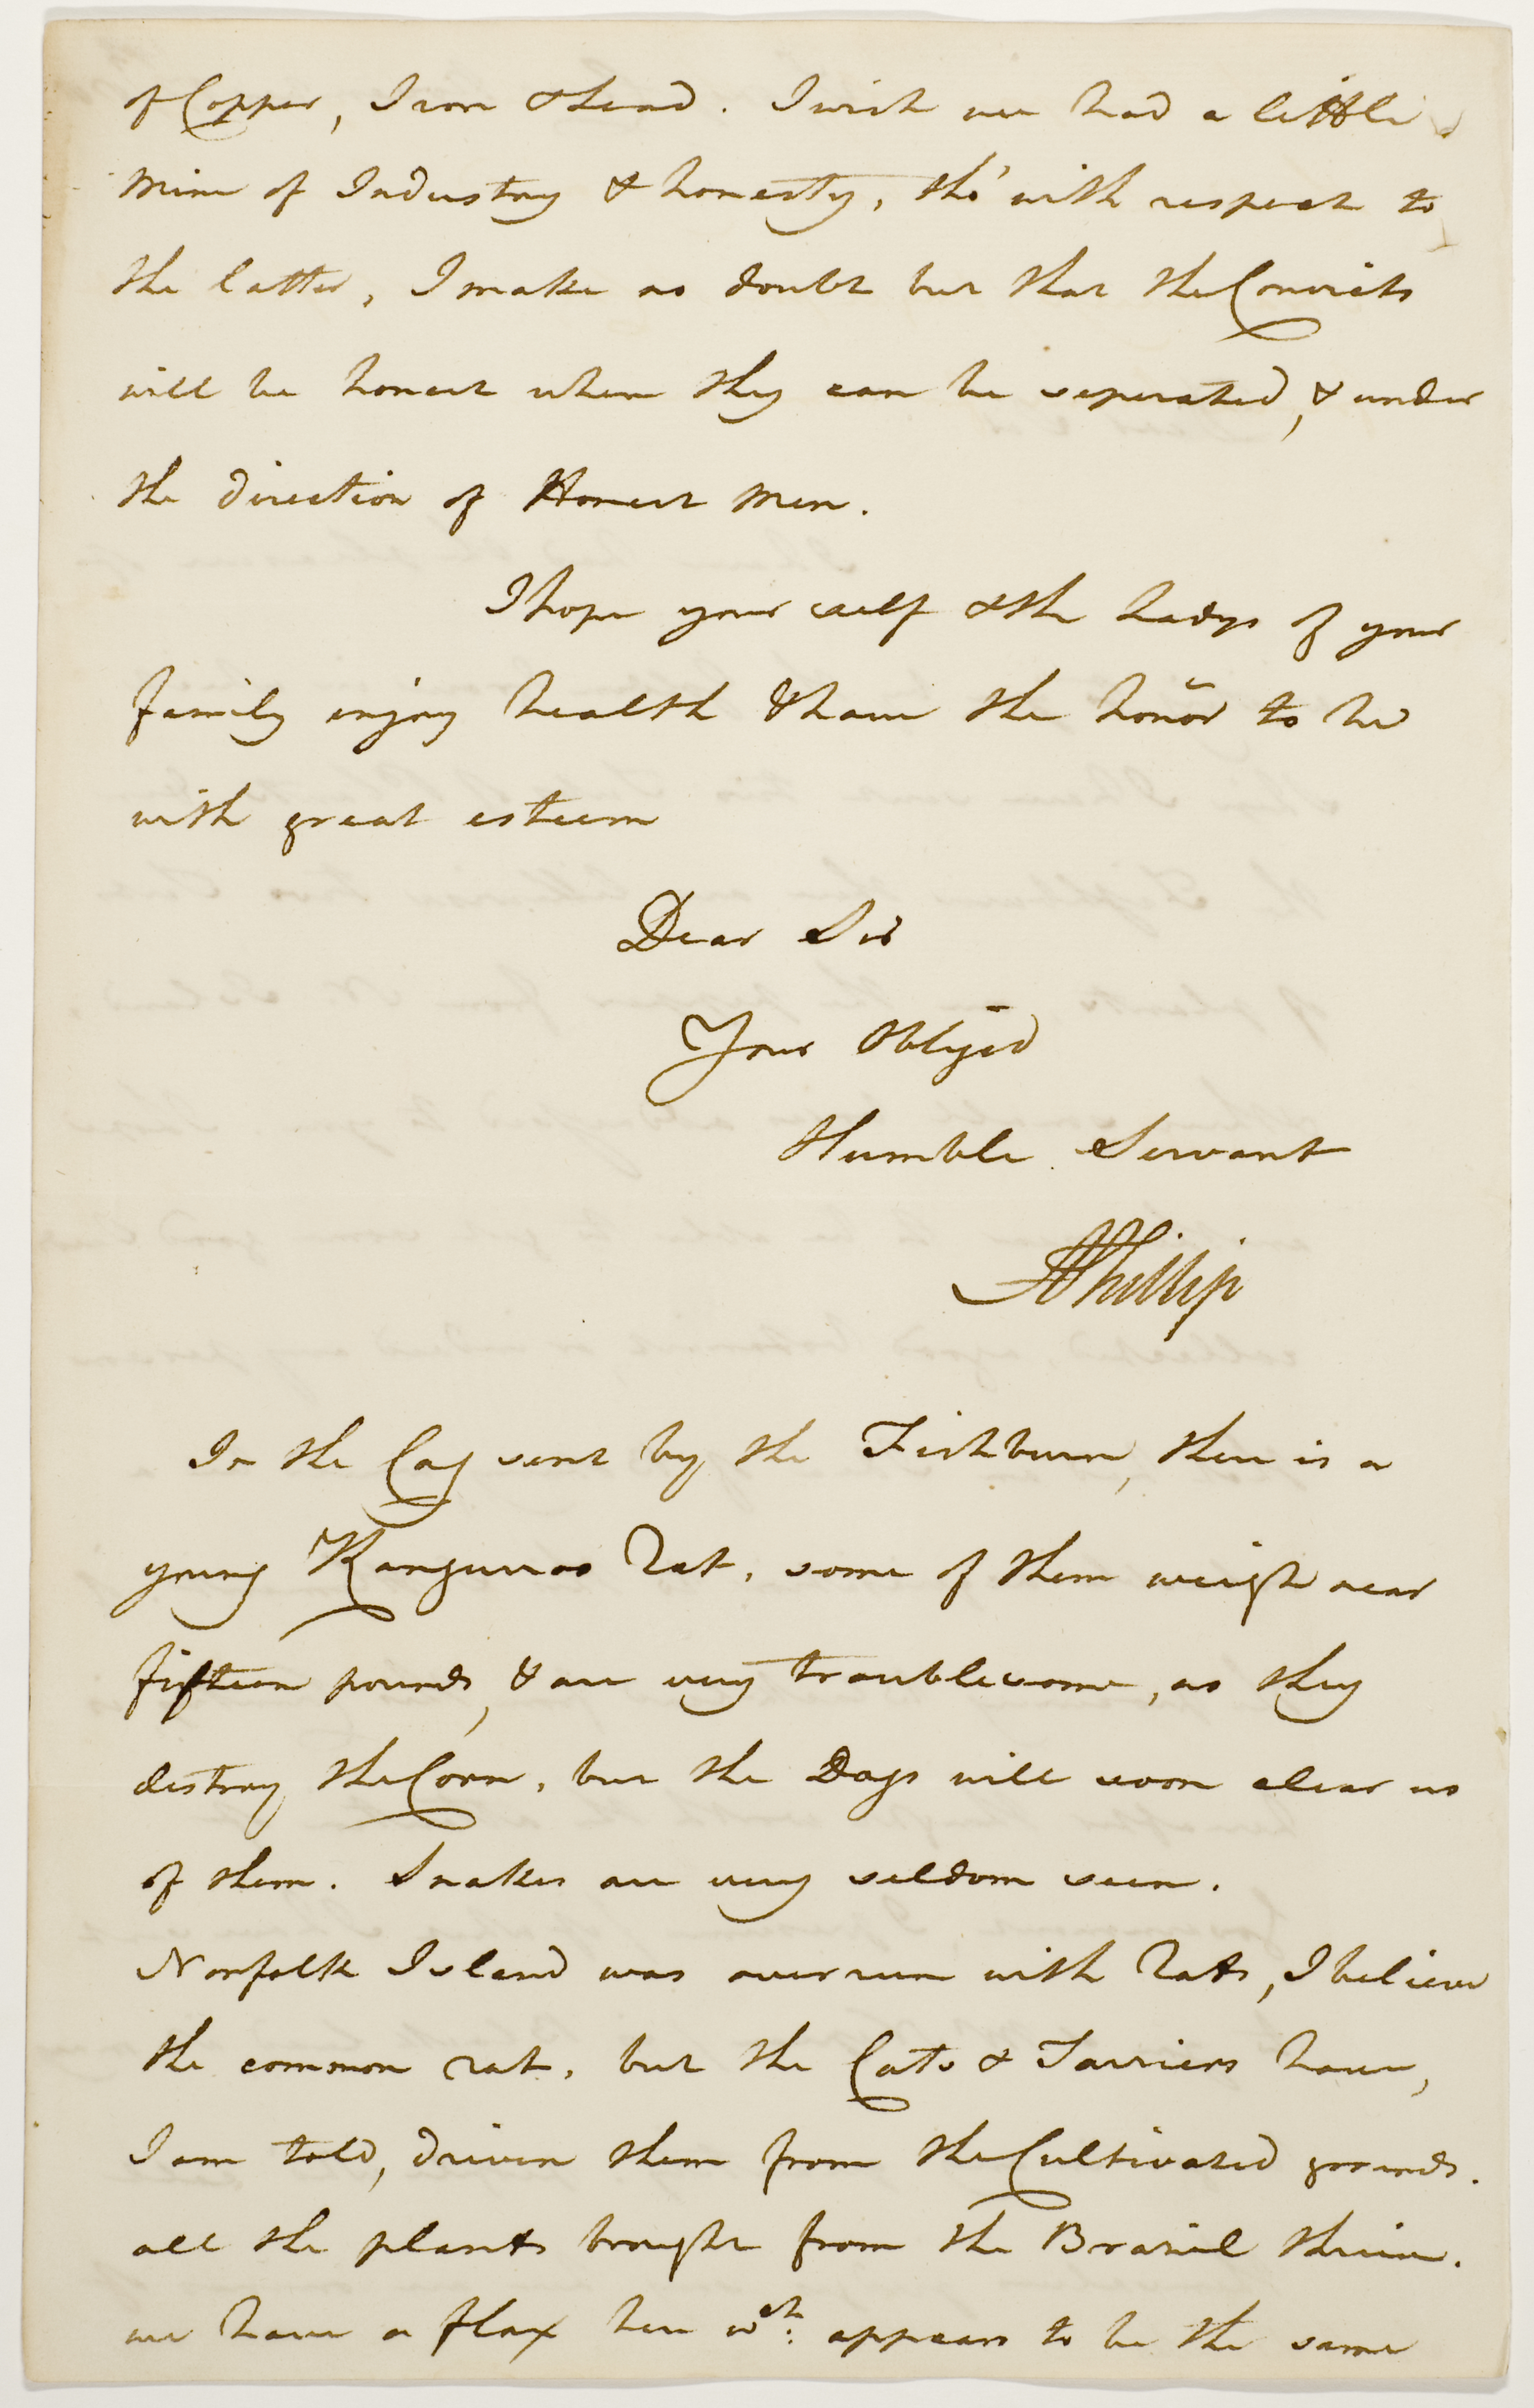 of Copper, Iron & Lead. I wish we had a little
Mine of Industry & honesty, tho' with respect to
the latter, I make no doubt but that the Convicts
will be honest when they can be seperated, & under
the direction of Honest Men.
I hope your self & the Ladys of your
family enjoy health & have the honor to be
with great esteem
Dear Sir
Your Obliged
Humble Servant
APhillip
In the Cag sent by the Fishburn, there is a
young Kanguroo Rat, some of them weigh near
fifteen pounds, & are very troublesome, as they
destroy the Corn, but the Dogs will soon clear us
of them. Snakes are very seldom seen.
Norfolk Island was over run with Rats, I believe
the common rat, but the Cats & Tarriers have,
I am told, driven them from the Cultivated grounds.
all the plants brought from the Brasil thrive.
we have a flax here wch: appears to be the same